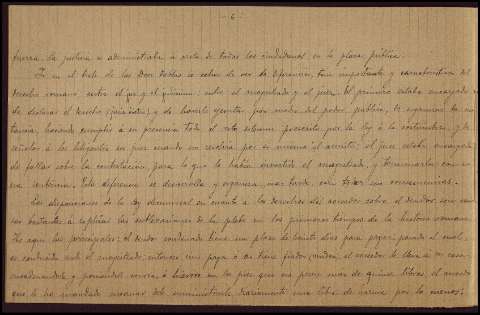 6
la justicia se administraba a vista de todos los ciudadanos en la plaza pública.
Ya en el texto de las Doce Tablas se echa de ver la diferencia, tan importante y característica del
derecho romano, entre el jus y el judicium, entre el magistrado y el juez. El primero estaba encargado
de declarar el derecho (juris dictio), y de hacerle ejecutar por medio del poder público, de organizar la ins-
tancia, haciendo cumplir a su presencia todo el rito externo prescrito por la ley o la costumbre, y de
señalar a los litigantes un juez cuando no resolvía por si mismo el asunto; el juez estaba encargado
de fallar sobre la contestación, para lo que le había investido el magistrado, y terminarla con u-
na sentencia. Esta diferencia se desarrolla y organiza, mas tarde, con todas sus consecuencias.
Las disposiciones de la ley decemviral en cuanto a los derechos del acreedor sobre el deudor, son
bastante a explicar las sublevaciones de la plebe en los primeros tiempos de la historia romana.
He aqui las principales: el deudor condenado tiene un plazo de treinta dias para pagar; pasado el cual,
es conducido ante el magistrado; entonces, sino paga o no tiene fiador (vindex), el acreedor le lleva a su casa
encadenandole y poniendole correa, o hierros en los pies que no pesen mas de quince libras; el acreedor
que le ha mandado suministrarle diariamente una libra de harina por lo menos;